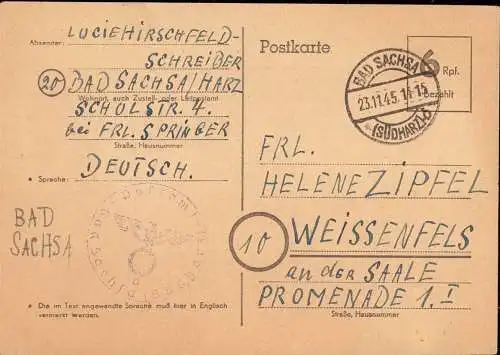 Absender:
LUCIE HIRSCHFELD-
SCHREIBER
20 BAD SACHSA/HARZ
Wohnort, auch Zustell- oder Leitpostamt
SCHULSTR. 4.
bei FRL. SPRINGER
Straße, Hausnummer
• Sprache:
DEUTSCH.
BAD
SACHSA
• Die im Text angewandte Sprache muß hier in Englisch
vermerkt werden.
Postkarte
6 Rpf.
bezahlt
BAD SACHSA
23.11.45.14-15
(SÜDHARZ)
FRL.
HELENE ZIPFEL
10 WEISSENFELS
an der SAALE
PROMENADE 1. I
Straße, Hausnummer